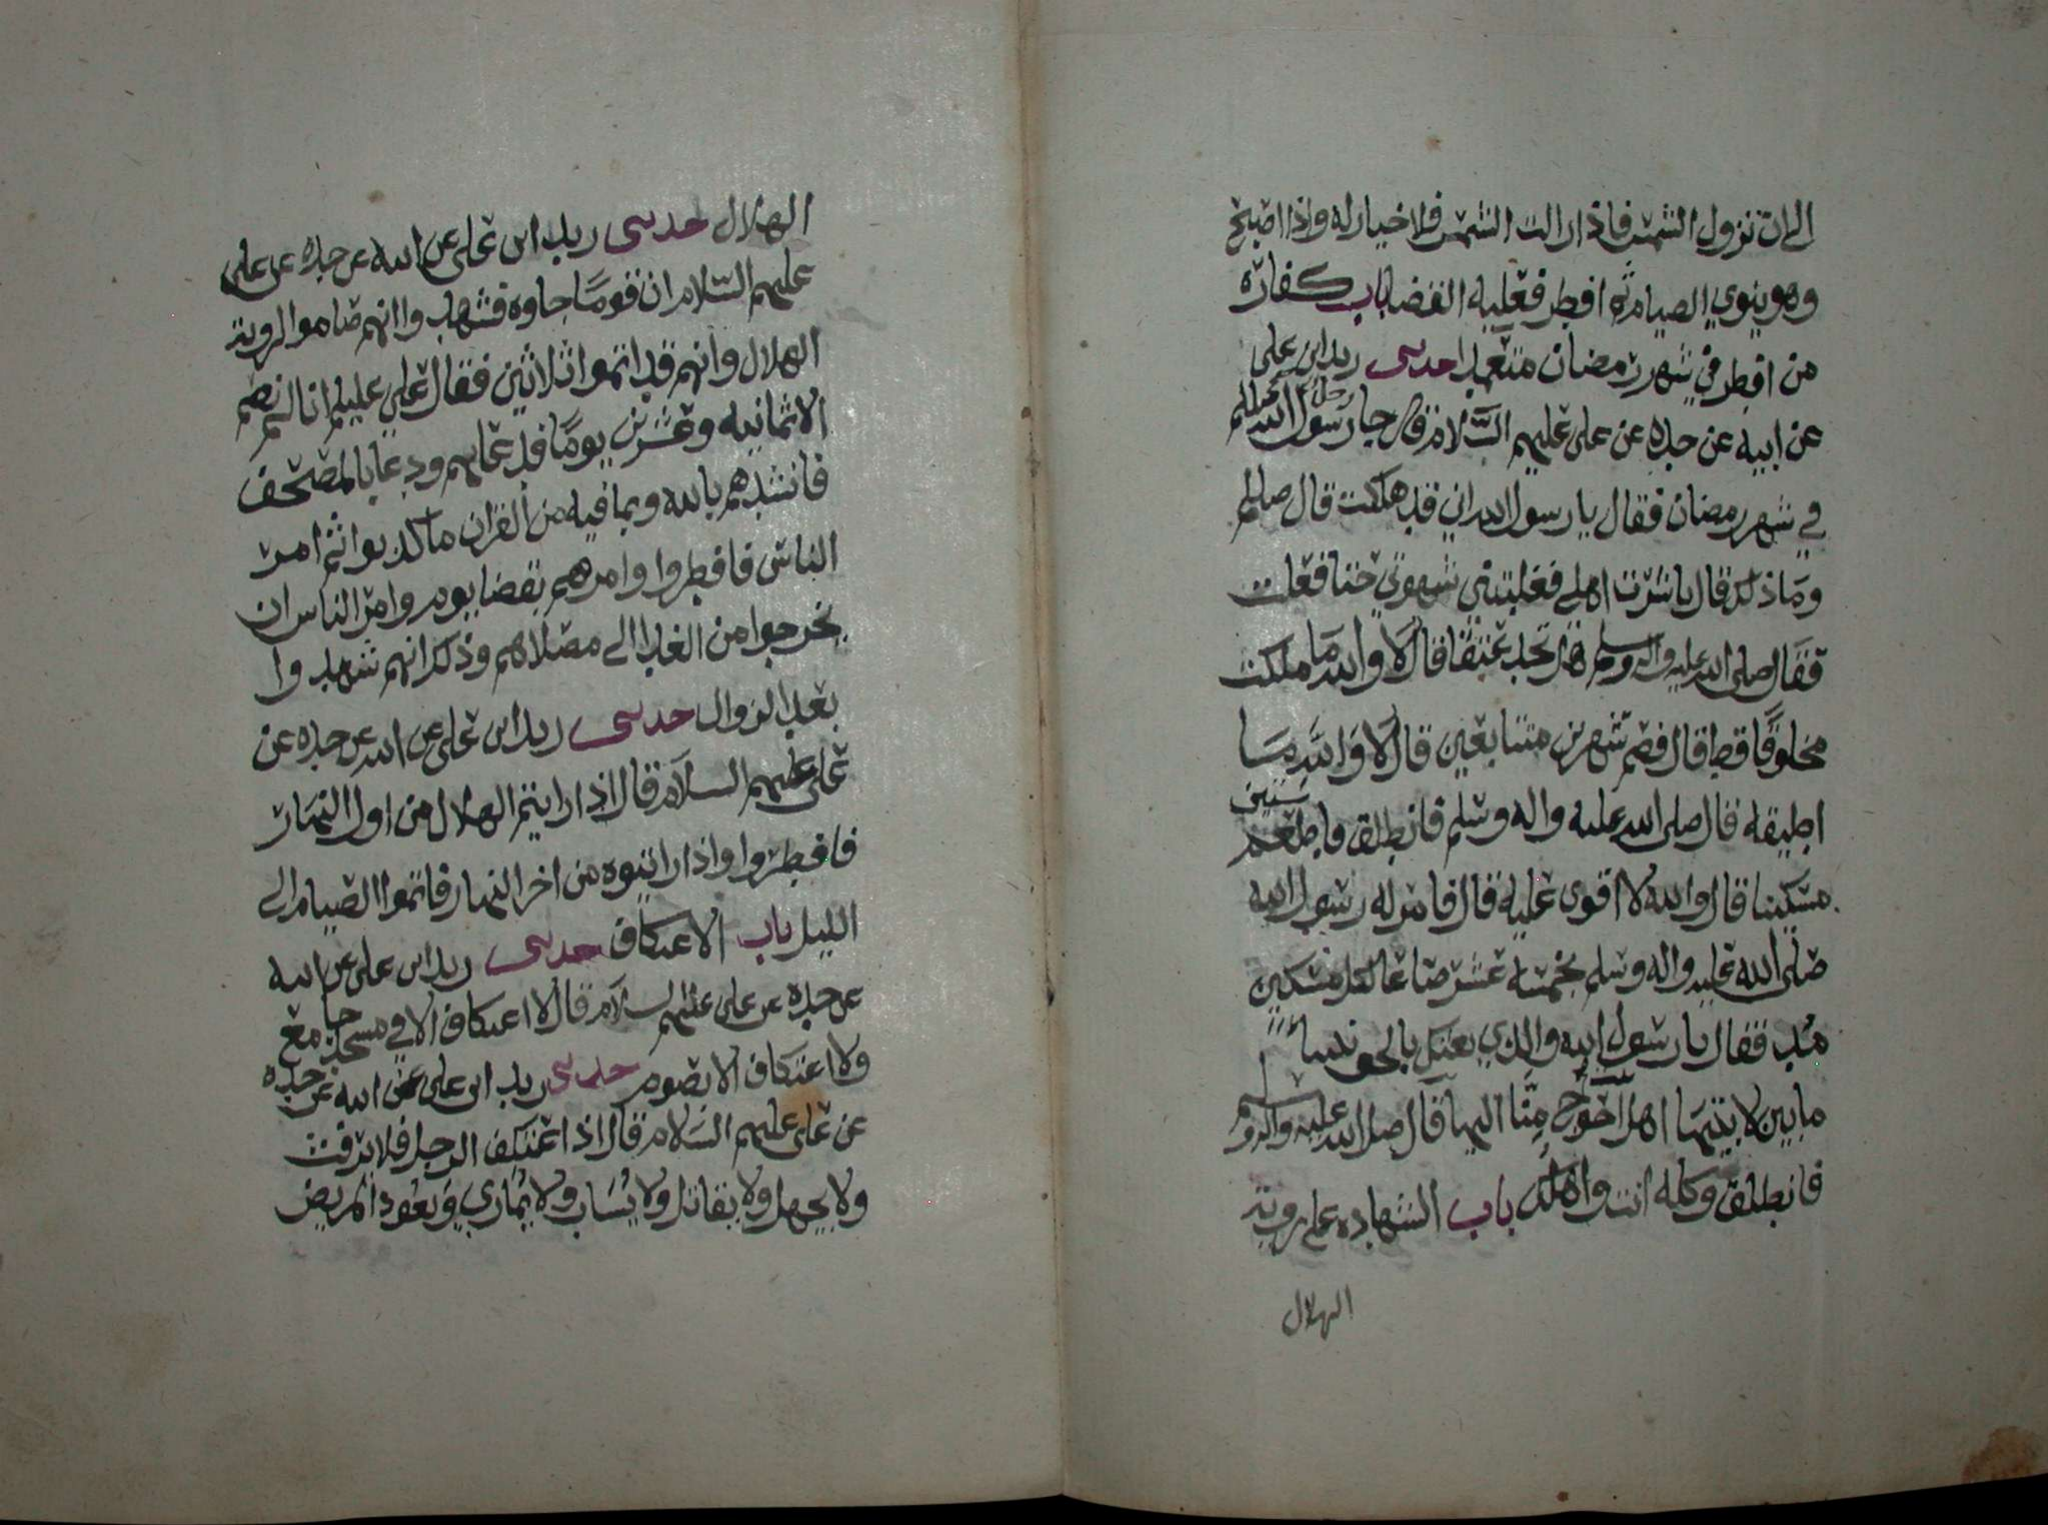 الى ان تزول الشمس فاذا زالت الشمس فلا خيار له واذا اصبح
وهو ينوي الصيام ثم افطر فعليه القضا باب كفارة
من افطر في شهر رمضان متعمدا حدثني زيد ابن علي
عن ابيه عن جده عن علي عليهم السلام قال جا رجل رسول الله صللم
في شهر رمضان فقال يا رسول الله اني قد هلكت قال صللم
وما ذلك قال باشرت اهلي فغلبتني شهوتي حتا فعلت
فقال صلى الله عليه واله وسلم هل تجد عتقا قال لا والله ما ملكت
مخلوقا قط قال فصم شهرين متتابعين قال لا والله ما
اطيقه قال صلى الله عليه واله وسلم فانطلق فاطعم ستين
مسكينا قال والله لا اقوى عليه قال فامر له رسول الله
صلى الله عليه واله وسلم بخمسة عشر صاعا لكل مسكين
مد فقال يا رسول الله والذي بعثك بالحق نبيا
ما بين لابتيها اهل احوج منا اليها قال صلى الله عليه واله وسلم
فانطلق وكله انت واهلك باب الشهاده على رويت
الهلال
الهلال حدثني زيد ابن علي عن ابيه عن جده عن علي
عليهم السلام ان قوما جاوه فشهدوا انهم صاموا لرويت
الهلال وانهم قد اتموا ثلاثين فقال علي عليلم انا لم نصم
الا ثمانيه وعشرين يوما فدعاهم ودعا بالمصحف
فانشدهم بالله وبما فيه من القران ما كذبوا ثم امر
الناس فافطروا وامرهم بقضا يوم وامر الناس ان
يخرجوا من الغد الى مصلاهم وذلك انهم شهدوا
بعد الزوال حدثني زيد ابن علي عن ابيه عن جده عن
علي عليهم السلام قال اذا رايتم الهلال من اول النهار
فافطروا واذا رايتوه من اخر النهار فاتموا الصيام الى
الليل باب الاعتكاف حدثني زيد ابن علي عن ابيه
عن جده عن علي عليهم السلام قال لا اعتكاف الا في مسجد جامع
ولا اعتكاف الا بصوم حدثني زيد ابن علي عن ابيه عن جده
عن علي عليهم السلام قال اذا اعتكف الرجل فلا يرفث
ولا يجهل ولا يقاتل ولا يساب ولا يماري ويعود المريض